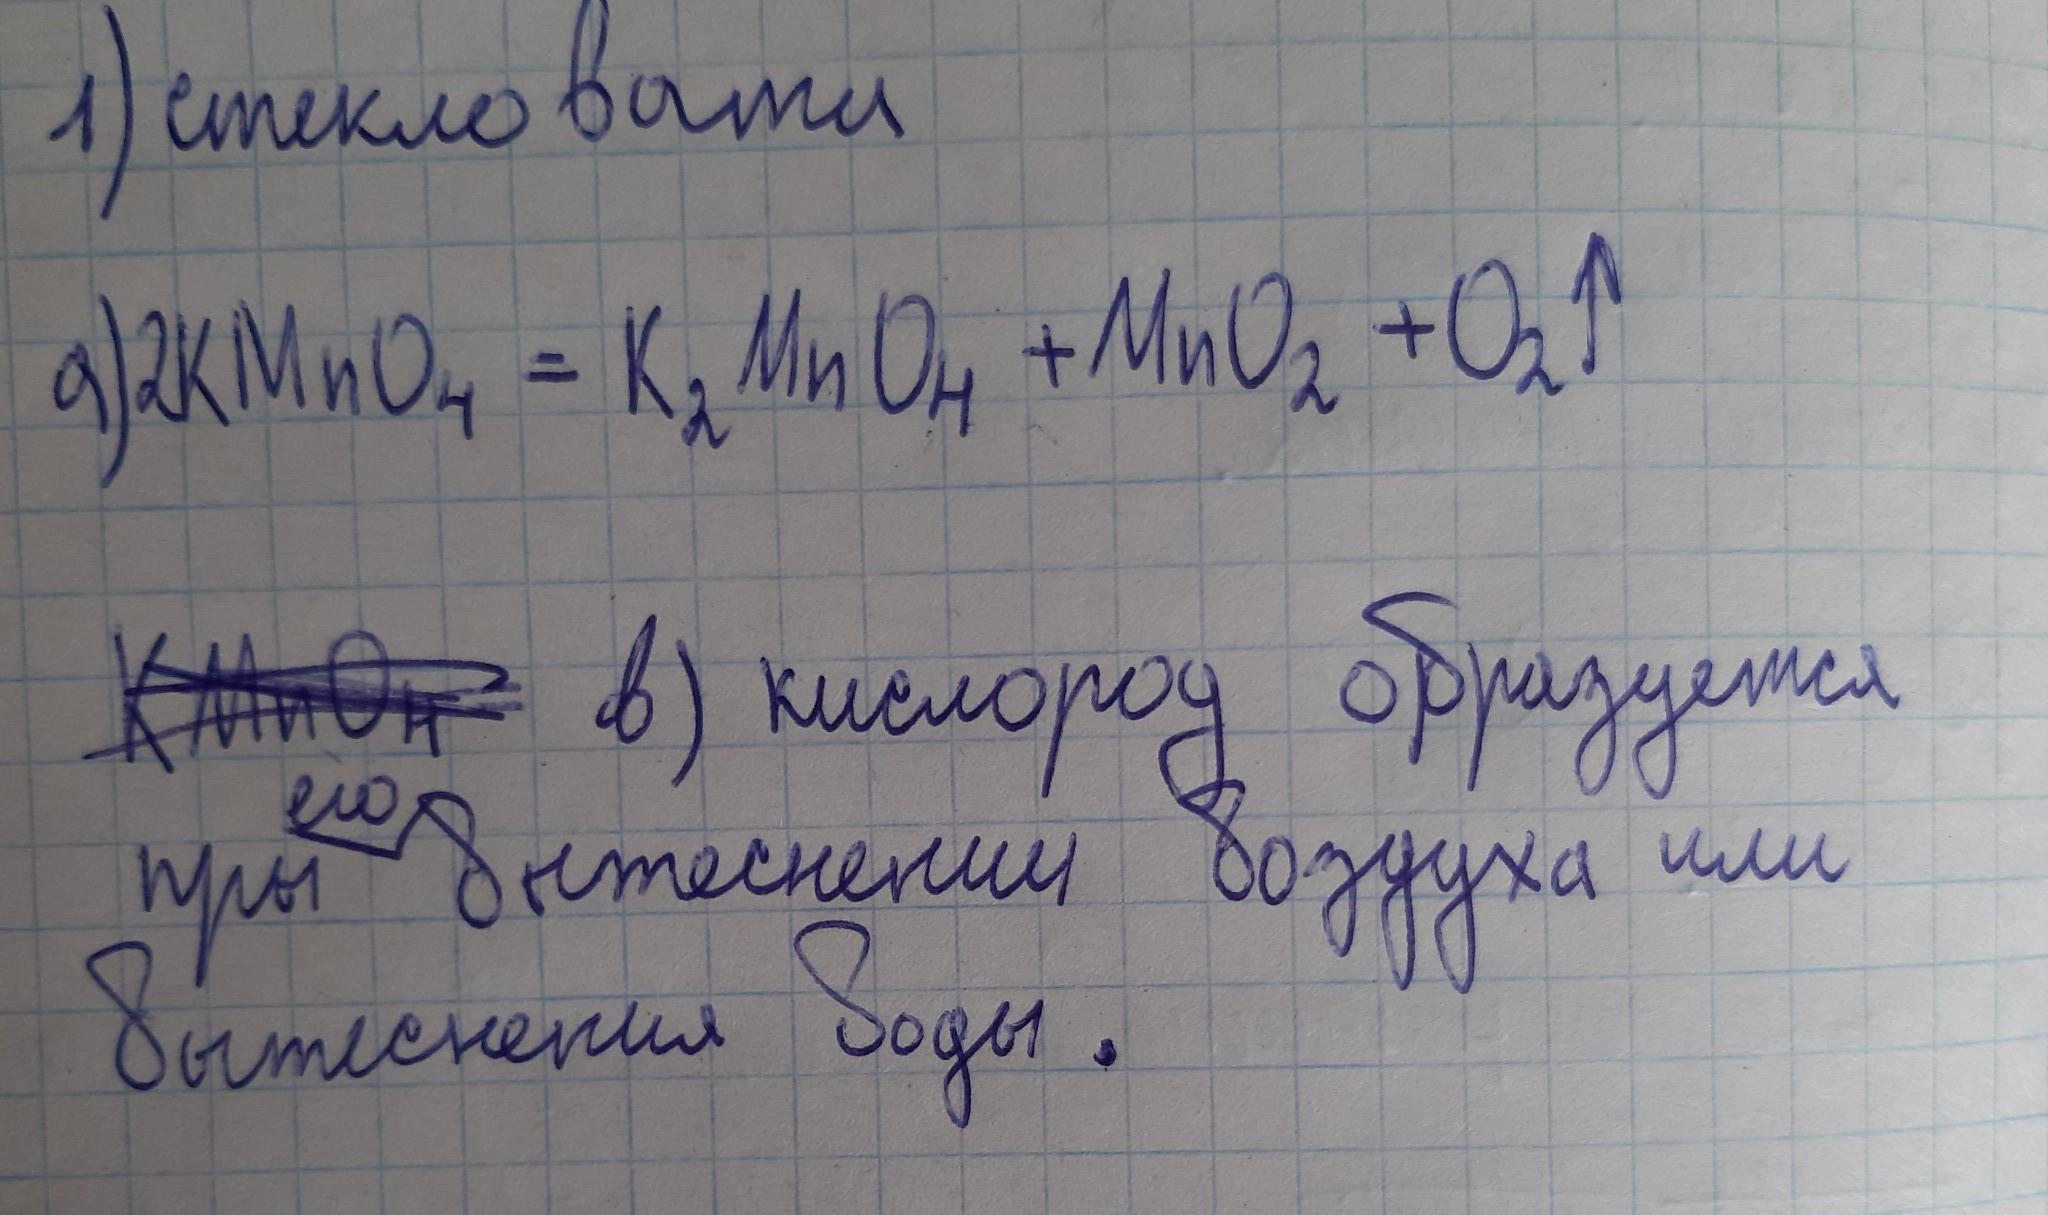 1) стекло вати
а) 2KMnO₄ = K₂MnO₄ + MnO₂ + O₂↑
KMnO₄ в) кислород образуется
его
пры вытеснении воздуха или
вытеснения воды.